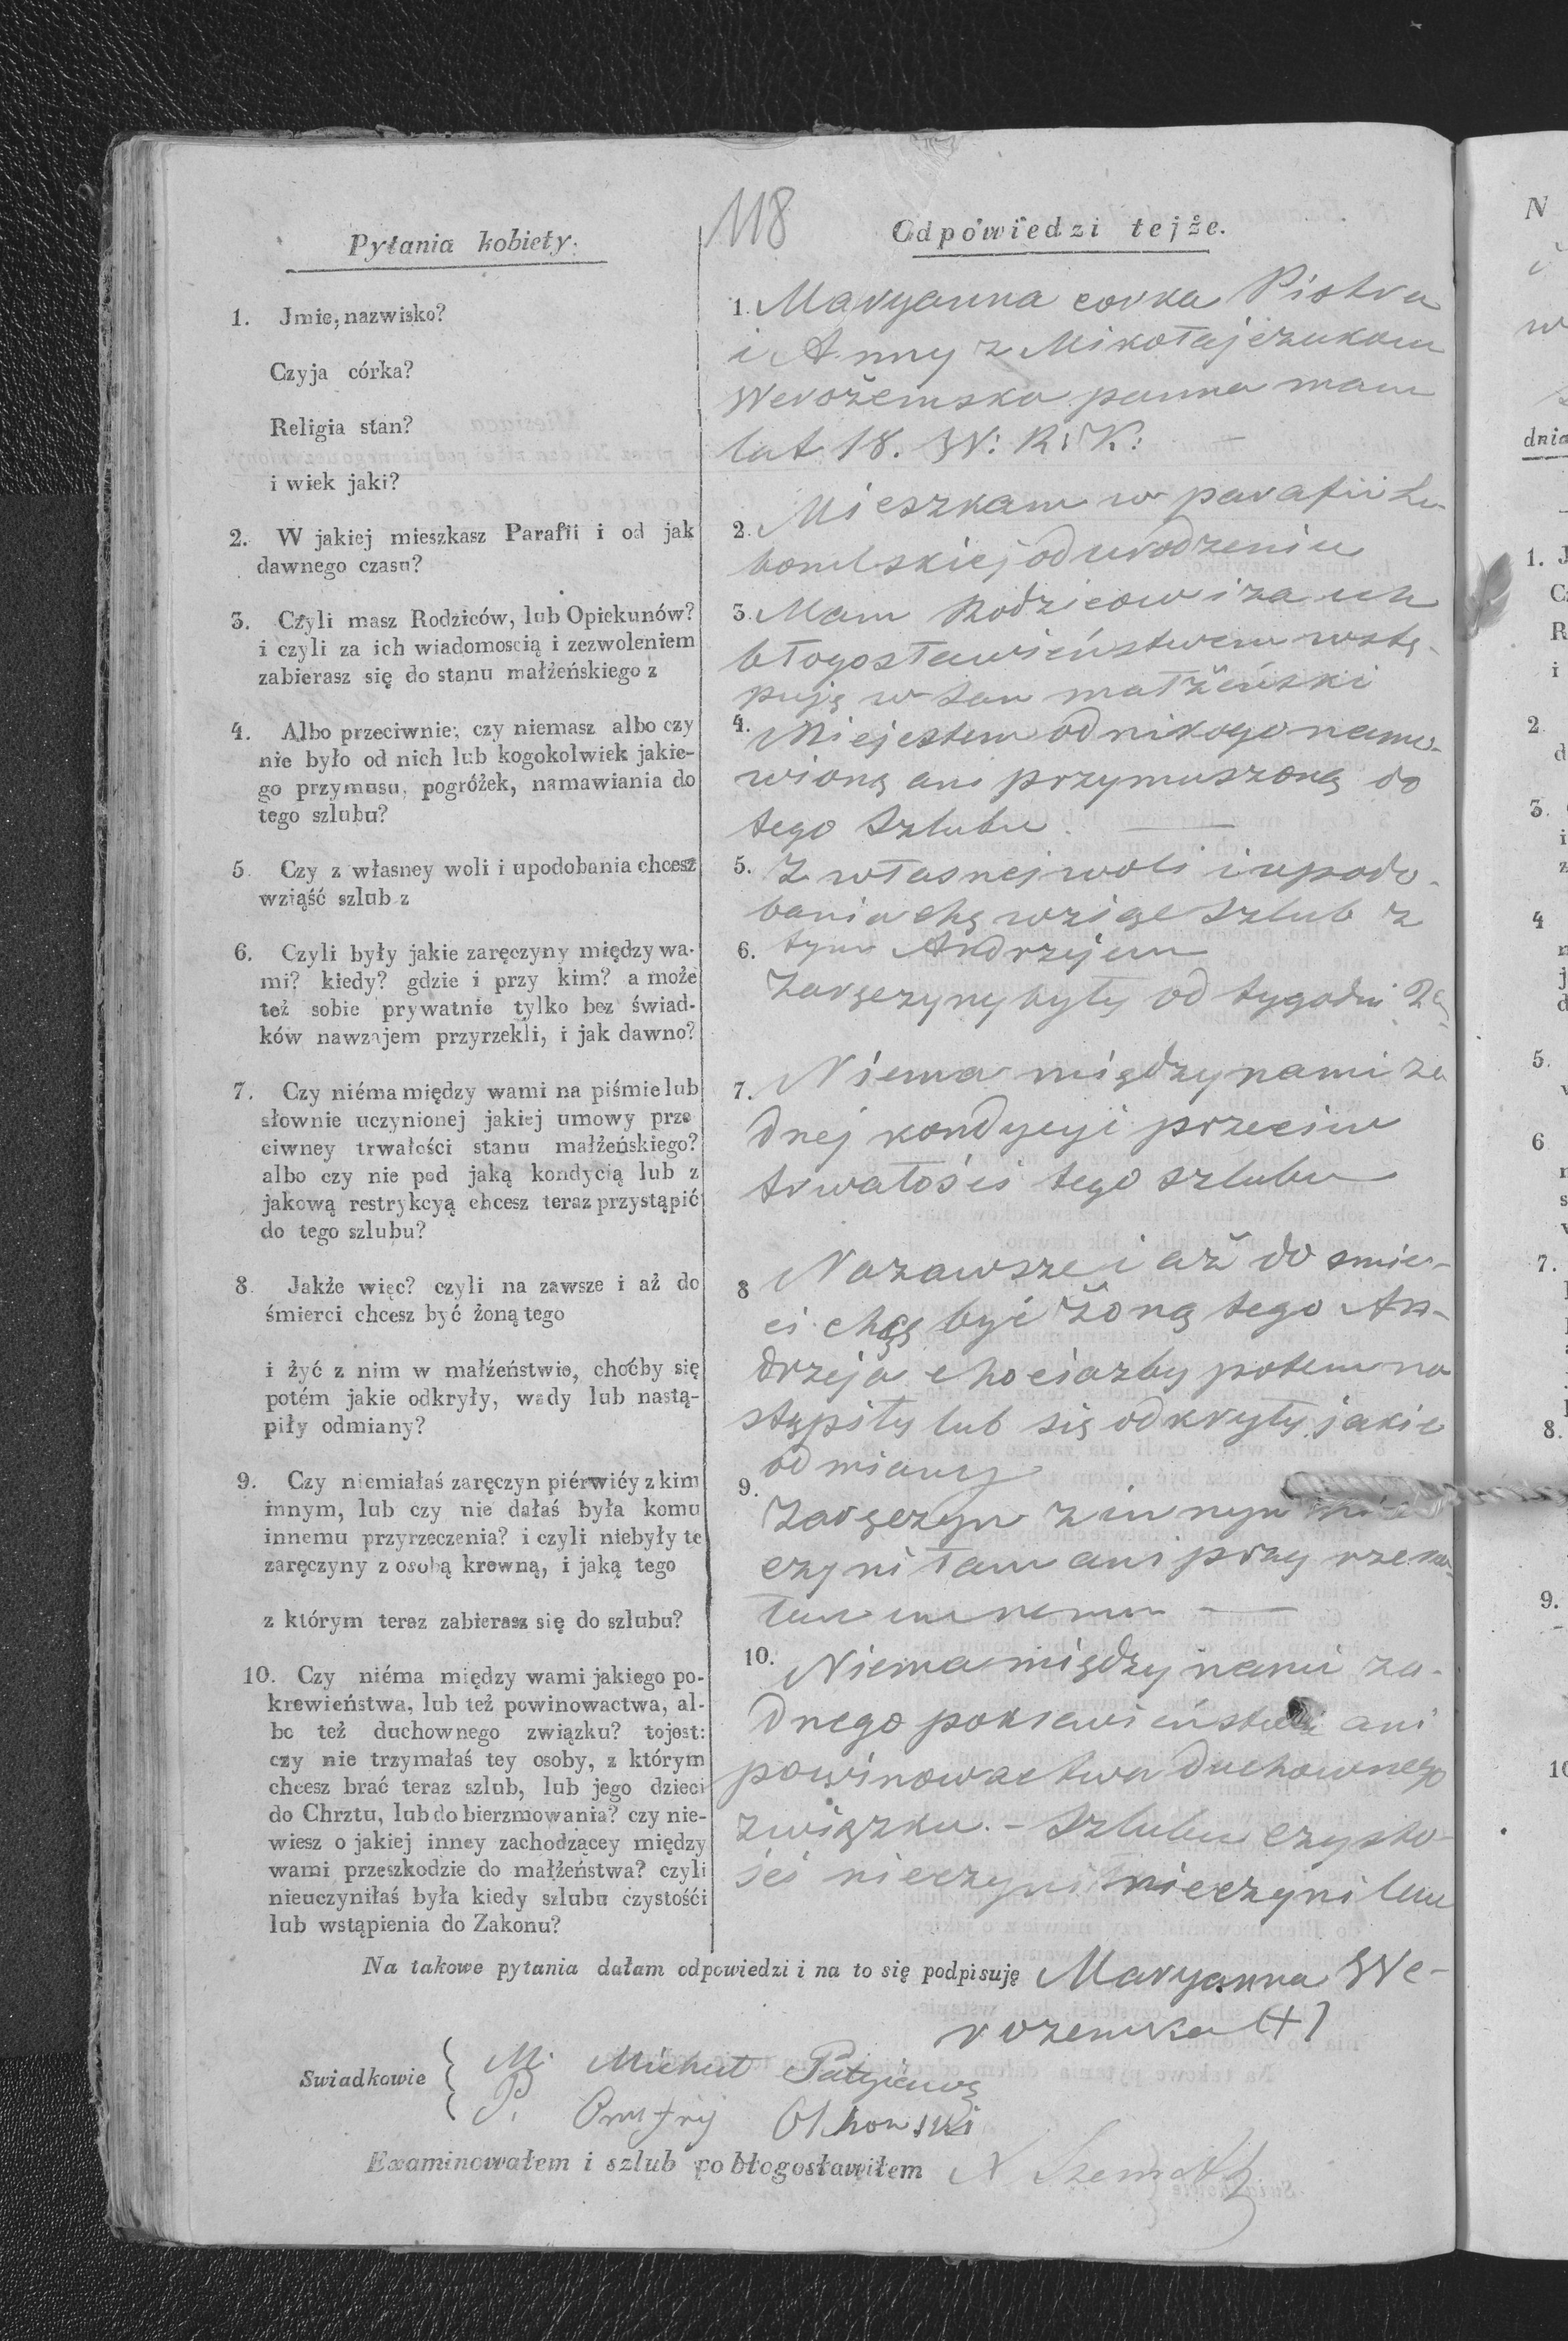 118
Pytania kobiety.
1. Jmie, nazwisko?
Czyja córka?
Religia stan?
i wiek jaki?
2. W jakiej mieszkasz Parafii i od jak
dawnego czasu?
3. Czyli masz Rodziców, lub Opiekunów?
i czyli za ich wiadomoscią i zezwoleniem
zabierasz się do stanu małżeńskiego z
4. Albo przeciwnie, czy niemasz albo czy
nie było od nich lub kogokolwiek jakie-
go przymusu, pogróżek, namawiania do
tego szlubu?
5. Czy z własney woli i upodobania chcesz
wziąść szlub z
6. Czyli były jakie zaręczyny między wa-
mi? kiedy? gdzie i przy kim? a może
też sobie prywatnie tylko bez świad-
ków nawzajem przyrzekli, i jak dawno?
7. Czy niéma między wami na piśmie lub
słownie uczynionej jakiej umowy prze
ciwney trwałości stanu małżeńskiego?
albo czy nie pod jaką kondycią lub z
jakową restrykcyą chcesz teraz przystąpić
do tego szlubu?
8. Jakże więc? czyli na zawsze i aż do
śmierci chcesz być żoną tego
i żyć z nim w małżeństwie, choćby się
potém jakie odkryły, wady lub nastą-
piły odmiany?
9. Czy niemiałaś zaręczyn piérwiéy z kim
innym, lub czy nie dałaś była komu
innemu przyrzeczenia? i czyli niebyły te
zaręczyny z osobą krewną, i jaką tego
z którym teraz zabierasz się do szlubu?
10. Czy niéma między wami jakiego po-
krewieństwa, lub też powinowactwa, al-
bo też duchownego związku? tojest:
czy nie trzymałaś tey osoby, z którym
chcesz brać teraz szlub, lub jego dzieci
do Chrztu, lub do bierzmowania? czy nie-
wiesz o jakiej inney zachodzącey między
wami przeszkodzie do małżeństwa? czyli
nieuczyniłaś była kiedy szlubu czystośći
lub wstąpienia do Zakonu?
Odpowiedzi tejże.
1. Maryanna corka Piotra
i Anny z Mikołajczukow
Werożemska panna mam
lat 18. W: R: K:
2. Mieszkam w parafii Lu-
bomlskiej od urodzenia
3. Mam Rodzicow i za ich
błogosławieństwem wstę-
puję w stan małżeński
4. Niejestem od nikogo namo-
wioną ani przymuszoną do
tego Szlubu.
5. Z własnej woli i upodo-
bania chę wziąć Szlub z
tym Andrzejem
6. Zaręczyny były od tygodni
7. Niema między nami ża
dnej kondycyi przeciw
trwałości tego szlubu
8 Nazawsze i aż do smier-
ci chcę być żoną tego An-
drzeja chociazby potem na
stąpiły lub się odkryły jakie
odmiany
9. Zaręczyn z innym nie
czyniłam ani przyrzeka-
łam innemu
10. Niema między nami ża-
dnego pokrewieństwa ani
powinowactwa duchownego
związku. - Szlubu czysto-
ści nieczynił nieczyniłam
Na takowe pytania dałam odpowiedzi i na to się podpisuję Maryanna We-
rozemska (+)
Swiadkowie { M. Michał
P. Onufry Olhowski
Examinowałem i szlub pobłogosławiłem
N
dnia
1. J
2.
3.
4
5.
6
7.
8.
9.
10